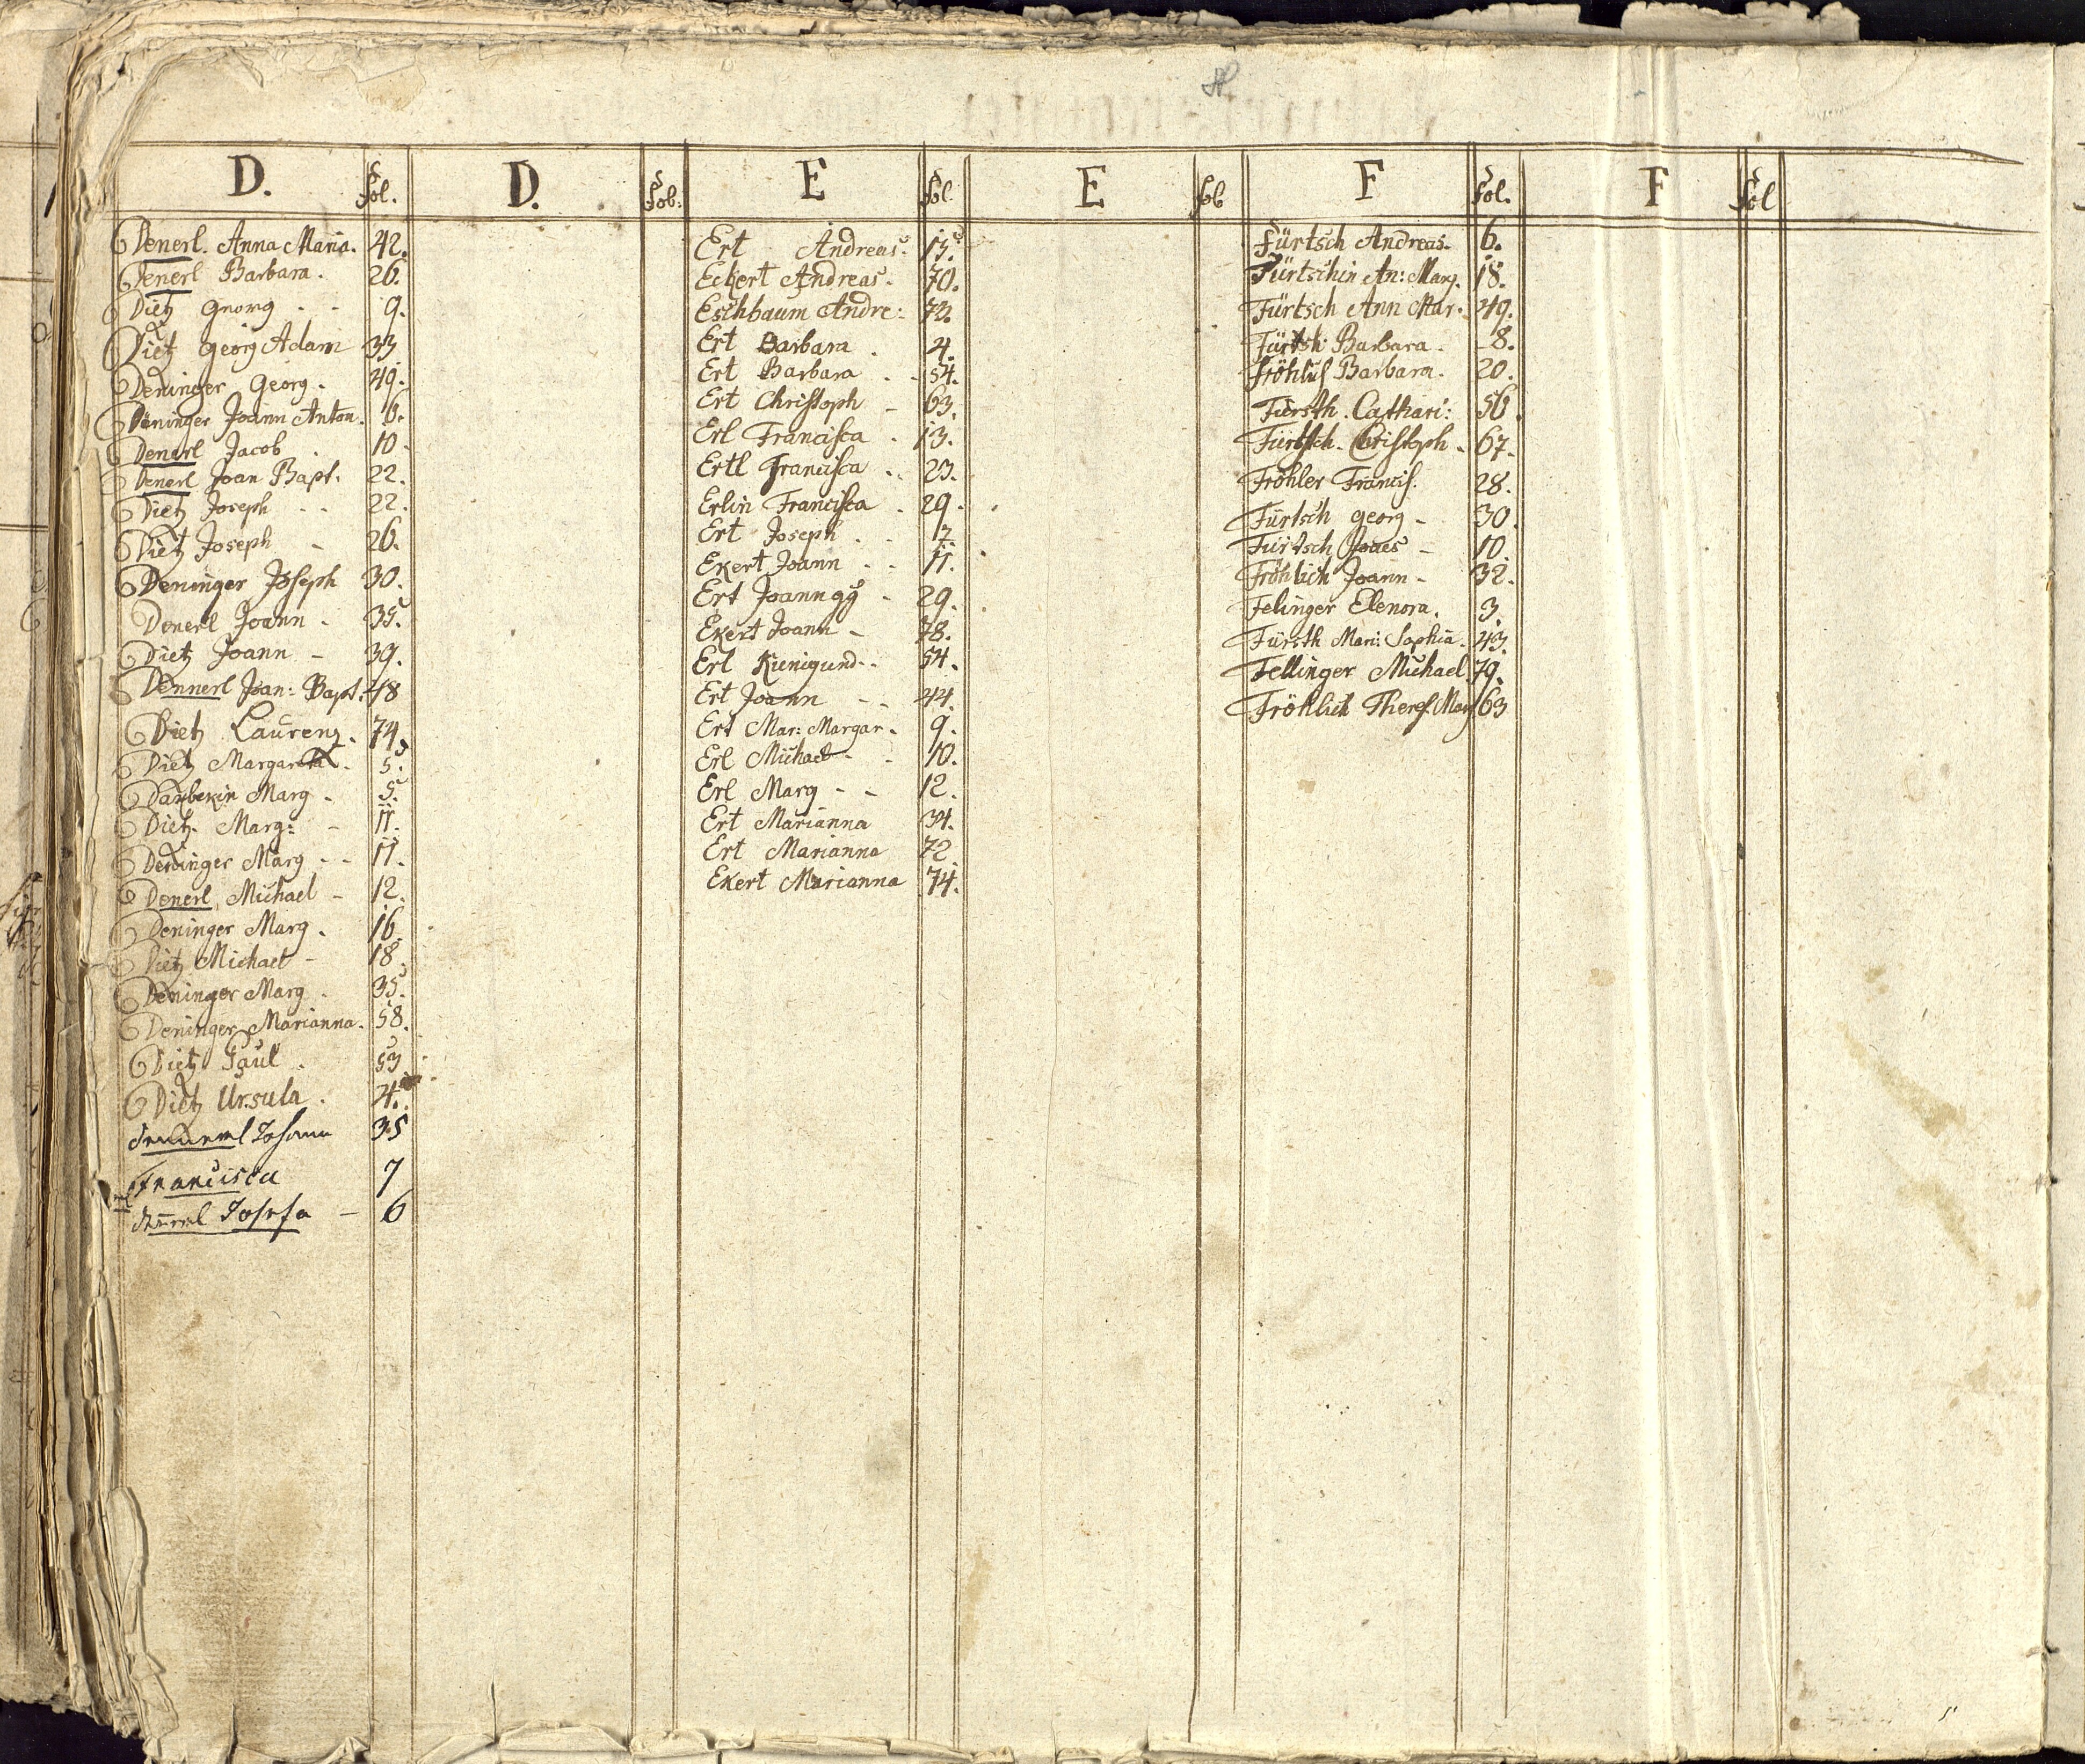 D. Fol. D. Fol. E Fol. E Fol F Fol. F Fol
Denerl. Anna Maria. 42.
Denerl Barbara. 26.
Dietz Georg - - 9.
Dietz Georg Adam 33
Deninger Georg. 49.
Deninger Joann Anton. 6.
Denerl Jacob . 10
Denerl Joan Bapt. 22.
Dietz Joseph - - 22.
Dietz Joseph - 26.
Deninger Joseph 30.
Denerl Joann - 35.
Dietz Joann - 39.
Dennerl Joan: Bapt. 48
Dietz Laurenz. 74.
Dietz Margareta. 5.
Daubekin Marg - 5.
Dietz Marg: - 11.
Deninger Marg - - 11.
Denerl Michael - 12.
Deninger Marg. 16.
Dietz Michael - 18.
Deninger Marg. 35.
Deninger Marianna. 58.
Dietz Paul . 53
Dietz Ursula . 4.
Dennerl Johann 35
Francisca 7
Josefa - 6
Ert Andreas. 15.
Eckert Andreas. 70.
Eschbaum Andre: 73.
Ert Barbara . 4.
Ert Barbara . - 54.
Ert Christoph - 63.
Erl Francisca . 13.
Ertl Francisca . . 23.
Erlin Francisca . 29.
Ert Joseph . . 7.
Ekert Joann - - 11.
Ert Joann gg - 29.
Ekert Joann - 78.
Erl Kunigund - . 54.
Ert Joann - - 44.
Ert Mar: Margar. 9.
Erl Michael - . 10.
Erl Marg - - 12.
Ert Marianna 34.
Ert Marianna 72
Ekert Marianna 74.
Fürtsch Andreas. 6.
Fürtschin An: Marg. 18.
Fürtsch Ann Mar. 49.
Fürtsh Barbara. - 8.
Fröhlich Barbara. 20.
Fürsth. Cathari: 56.
Fürtsch. Christoph. 67.
Fröhler Francis. 28.
Fürtsch Georg - 30.
Fürtsch Joaes - 10.
Fröhlich Joann - 32.
Felinger Elenora. 3.
Fürsth Mari: Sophia. 43.
Fellinger Michael 79.
Fröhlich Theres. Mar 63